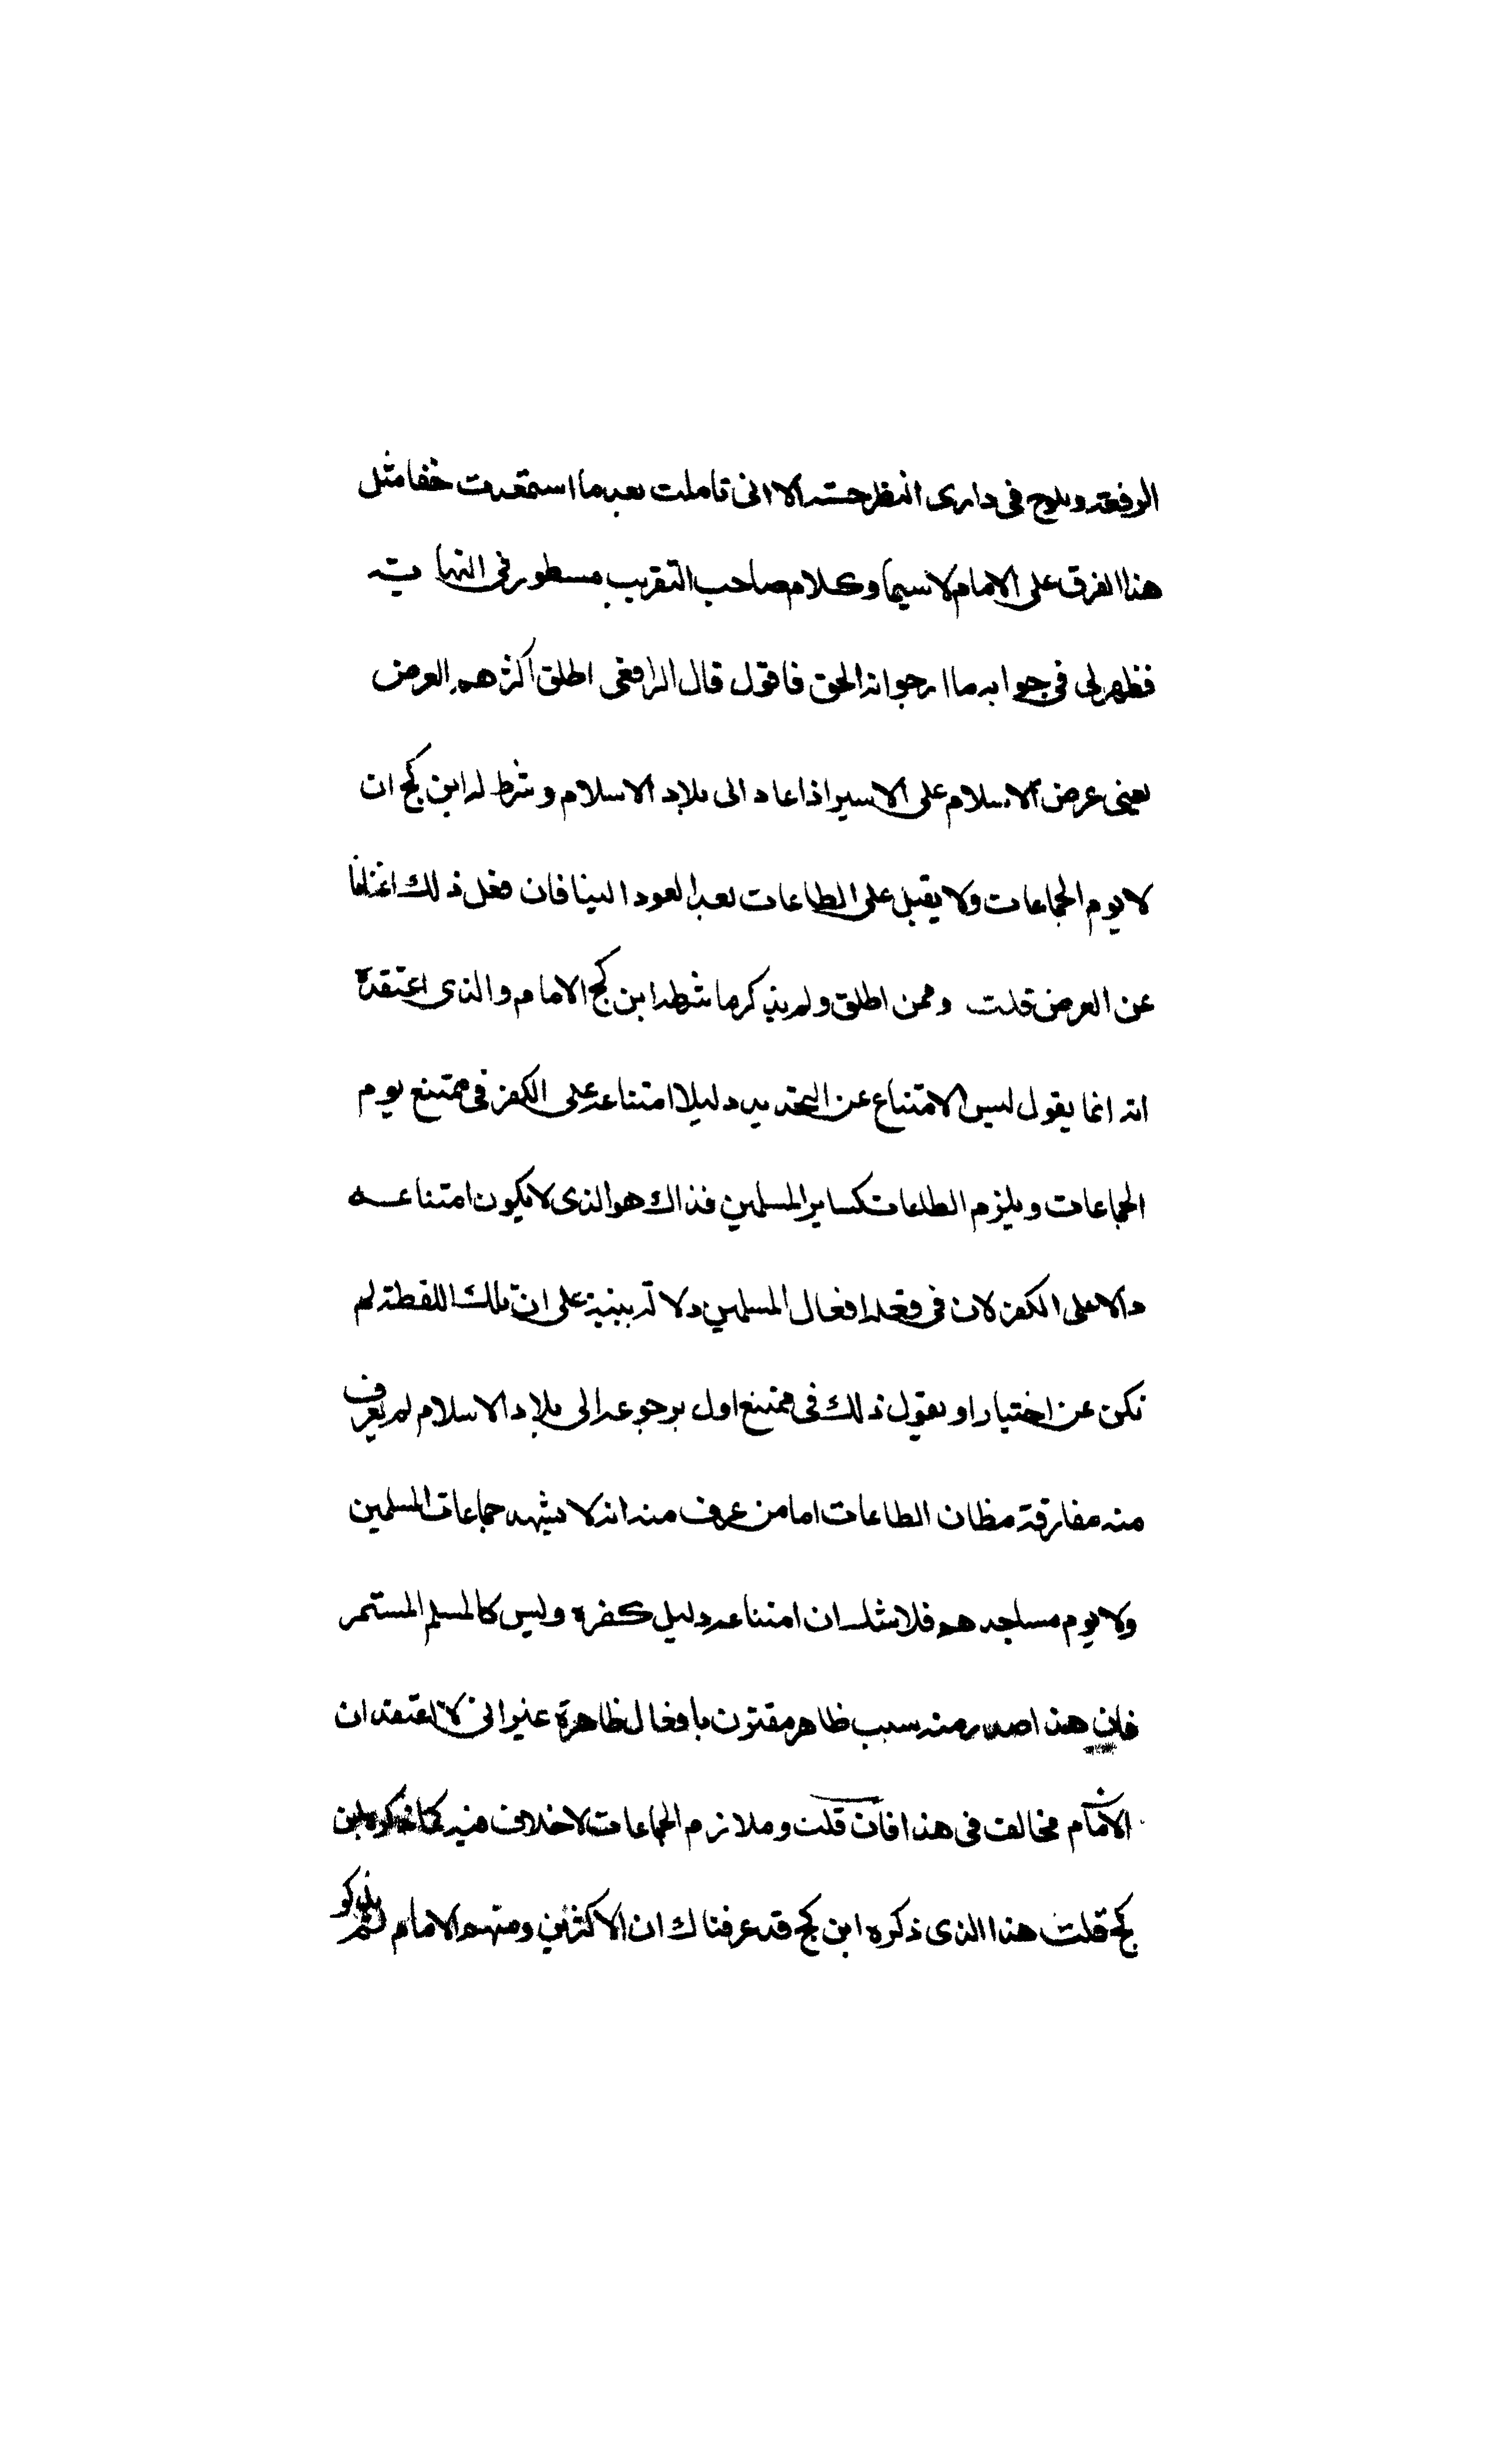 الرفعة ويلوح في داري النظر حسنه الا انى تاملت بعد ما استعقدت خفا مثل
هذا الفرق على الامام لا سيما وكلام صاحب التقريب مسطور في النهاية
فظهر لى في جوابه ما ارجوا نه الحق فاقول قال الرافعى اطلق اكثرهم العرض
يعنى عرض الاسلام على الاسير اذا عاد الى بلاد الاسلام وشرط له ابن كج ان
لا يوم الجماعات ولا يقبل على الطاعات بعد العود الينا فان فعل ذلك اغنانا
عن العرض قلت وممن اطلق ولم يذكر ما شرطه ابن كج الامام والذى اعتقده
انه انما يقول ليس الامتناع عن التجديد دليلا امتناعه على الكفر في ممتنع يوم
الجماعات ويلزم الطاعات كساير المسلمين فذاك هو الذى لا يكون امتناعه
دالا على الكفر لان في فعله افعال المسلمين دلالة بينية على ان تلك اللفظة لم
تكن عن اختيار او يقول ذلك في ممتنع اول برجوعه الى بلاد الاسلام لم يعرف
منه مفارقة مظان الطاعات اما من عرف منه انه لا يشهد جماعات المسلمين
ولا يوم مساجدهم فلا شك ان امتناعه دليل كفره وليس كالمسلم المستمر
فان هذا صدر منه سبب ظاهر مقترن بافعال ظاهرة غير انى لا اعتقد ان
الامام مخالف في هذا فان قلت وملازم الجماعات لا خلاف فيه كما ذكره ابن
كج قلت هذا الذى ذكره ابن كج قد عرفناك ان الاكثرين ومنهم الامام لم يذكر